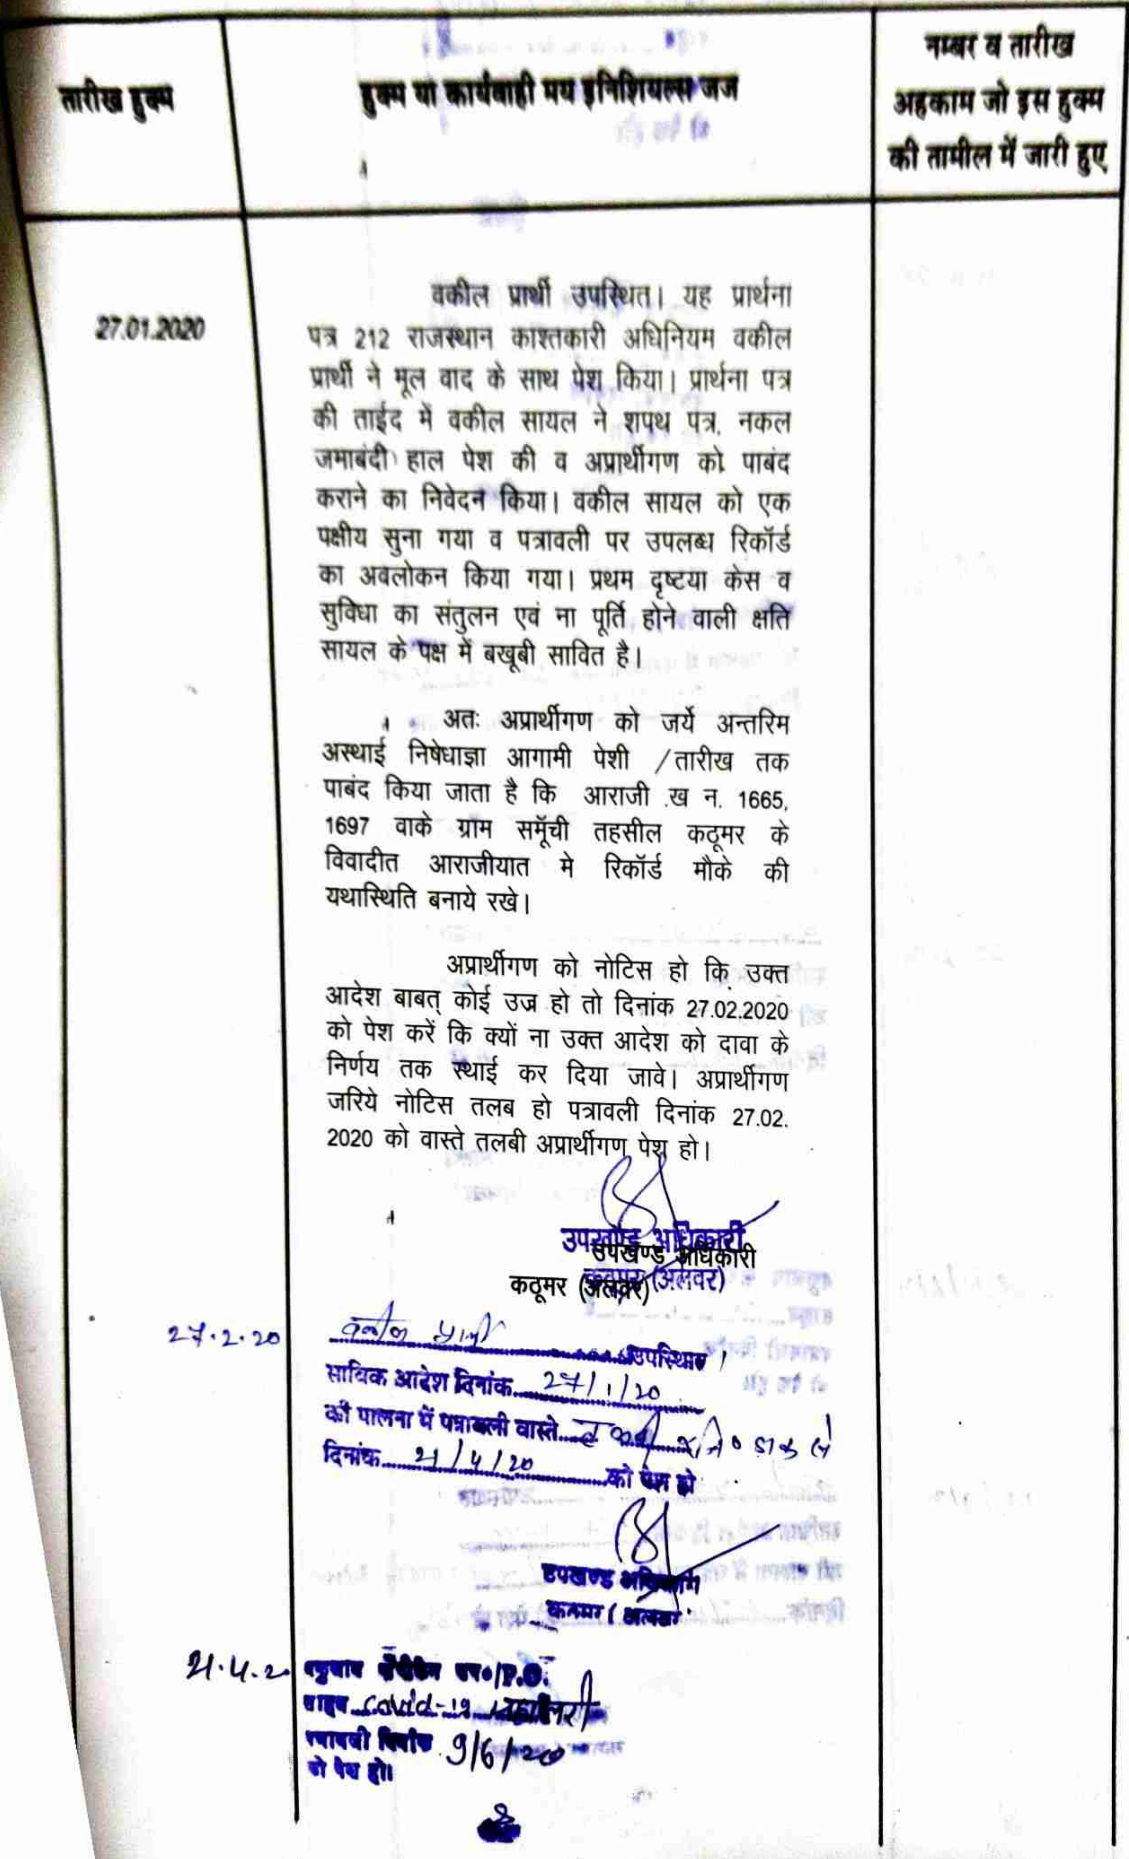 तारीख हुक्म
हुक्म या कार्यवाही मय इनिशियल्स जज
नम्बर व तारीख
अहकाम जो इस हुक्म
की तामील में जारी हुए
27.01.2020
वकील प्रार्थी उपस्थित। यह प्रार्थना
पत्र 212 राजस्थान काश्तकारी अधिनियम वकील
प्रार्थी ने मूल वाद के साथ पेश किया। प्रार्थना पत्र
की ताईद में वकील सायल ने शपथ पत्र, नकल
जमाबंदी हाल पेश की व अप्रार्थीगण को पाबंद
कराने का निवेदन किया। वकील सायल को एक
पक्षीय सुना गया व पत्रावली पर उपलब्ध रिकॉर्ड
का अवलोकन किया गया। प्रथम दृष्टया केस व
सुविधा का संतुलन एवं ना पूर्ति होने वाली क्षति
सायल के पक्ष में बखूबी सावित है।
अतः अप्रार्थीगण को जर्ये अन्तरिम
अस्थाई निषेधाज्ञा आगामी पेशी /तारीख तक
पाबंद किया जाता है कि आराजी .ख न. 1665,
1697 वाके ग्राम समूँची तहसील कठूमर के
विवादीत आराजीयात मे रिकॉर्ड मौके की
यथास्थिति बनाये रखे।
अप्रार्थीगण को नोटिस हो कि उक्त
आदेश बाबत् कोई उज्र हो तो दिनांक 27.02.2020
को पेश करें कि क्यों ना उक्त आदेश को दावा के
निर्णय तक स्थाई कर दिया जावे। अप्रार्थीगण
जरिये नोटिस तलब हो पत्रावली दिनांक 27.02.
2020 को वास्ते तलबी अप्रार्थीगण पेश हो।
उपखण्ड अधिकारी
उपखण्ड अधिकारी
कठूमर (अलवर)
कठूमर (अलवर)
27.2.20
वकील प्रार्थी उपस्थित।
साविक आदेश दिनांक 27/1/20
की पालना में पत्रावली वास्ते तलबी
दिनांक 21/4/20 को पेश हो
उपखण्ड अधिकारी
कठूमर (अलवर
21.4.2
P.O.
साहब Covid-19
पत्रावली दिनांक 9/6/20
को पेश हो।